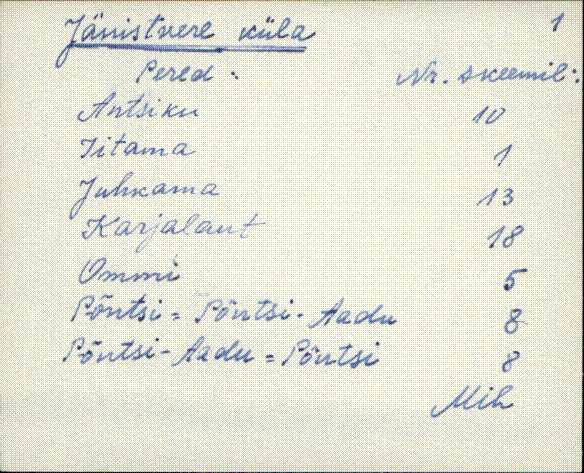 1
Jänistvere küla
Pered: Nr. skeemil:
Antsiku 10
Iitama 1
Juhkama 13
Karjalaut 18
Ommi 5
Põntsi = Põntsi-Aadu 8
Põntsi-Aadu = Põntsi 8
Mih